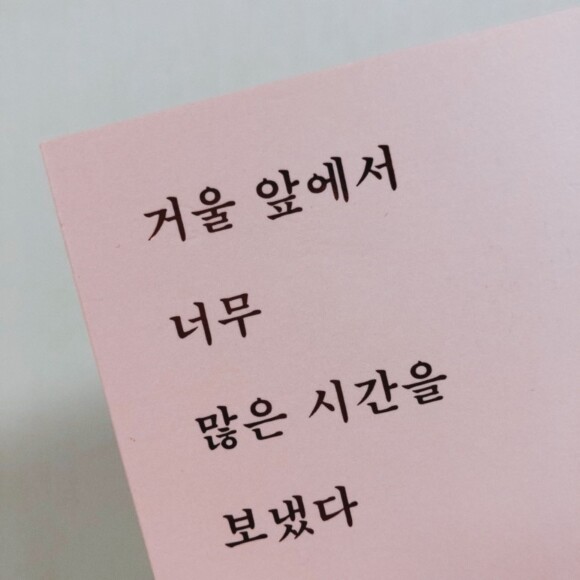 거울 앞에서
너무
많은 시간을
보냈다